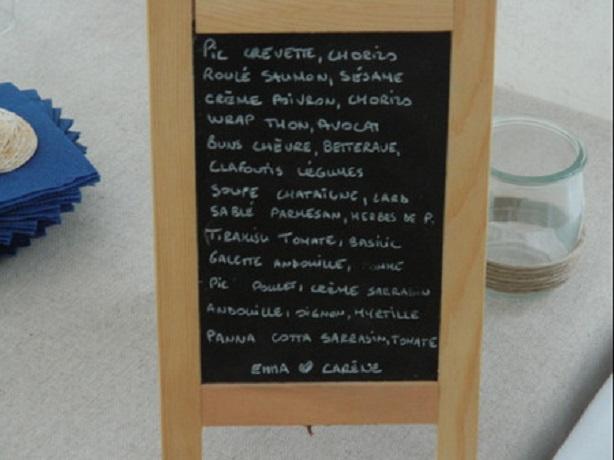 PIC CREVETTE, CHORIZO
ROULÉ SAUMON, SÉSAME
CRÈME POIVRON, CHORIZO
WRAP THON, AVOCAT
BUNS CHÈVRE, BETTERAVE,
CLAFOUTIS LÉGUMES
SOUPE CHATAÎGNE, LARD
SABLÉ PARMESAN, HERBES DE P.
TIRAMISU TOMATE, BASILIC
GALETTE ANDOUILLE,
PIC POULET, CRÈME SARRASIN
ANDOUILLE, OIGNON, MYRTILLE
PANNA COTTA SARRASIN, TOMATE
EMMA CARÈNE